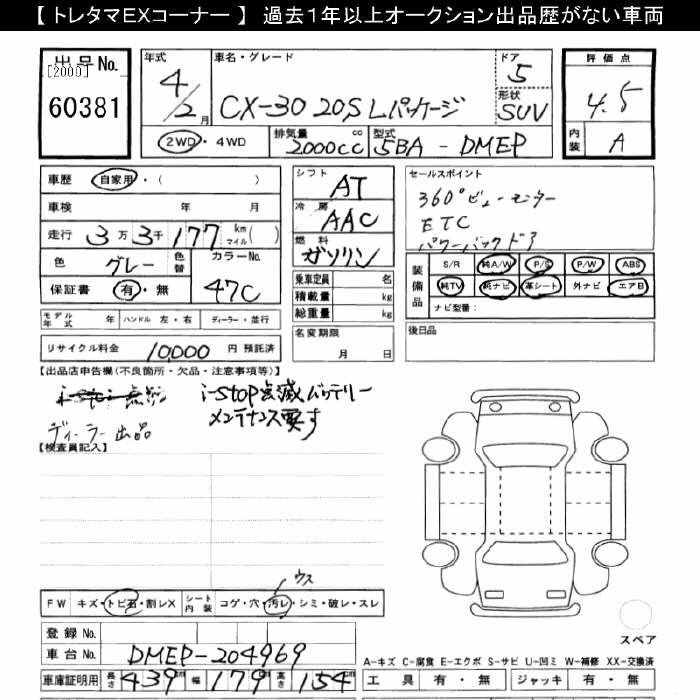 【 トレタマEXコーナー 】 過去1年以上オークション出品歴がない車両
出品No.
[2000]
60381
年式
4/2月
車名・グレード
CX-30 20S Lパッケージ
ドア
5
形状
SUV
評価点
4.5
内装
A
2WD・4WD
排気量
2000cc
cc
型式
5BA - DMEP
車歴 自家用・( )
車検 年 月
走行 3万3千177 km マイル( )
色 グレー 色替 カラーNo.
47C
保証書 有・無
モデル年式 年 ハンドル 左・右 ディーラー・並行
リサイクル料金 10,000 円 預託済
シフト
AT
冷房
AAC
燃料
ガソリン
乗車定員 名
積載量 kg
総重量 kg
名変期限
月 日
セールスポイント
360°ビューモニター
ETC
パワーバックドア
装備品
S/R 純A/W P/S P/W ABS
純TV 純ナビ 革シート 外ナビ エアB
ナビ型番:
後日品
【出品店申告欄(不良箇所・欠品・注意事項等)】
i-stop点滅バッテリー
メンテナンス要す
ディーラー出品
【検査員記入】
ウス
FW キズ・トビ石・割レX シート内装 コゲ・穴・汚レ・シミ・破レ・スレ
登録No.
車台No. DMEP-204969
車庫証明用 長さ 439 cm 幅 179 cm 高さ 154 cm
スペア
A-キズ C-腐食 E-エクボ S-サビ U-凹ミ W-補修 XX-交換済
工具 有・無 ジャッキ 有・無